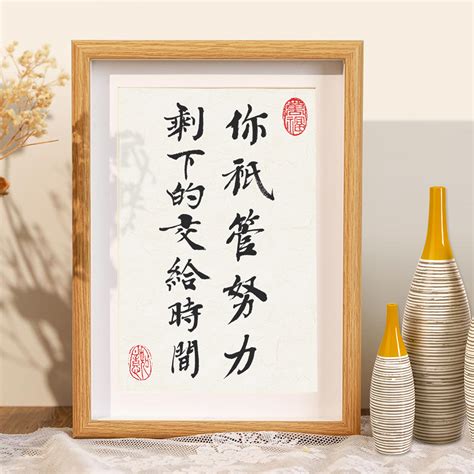 你祇管努力
剩下的交給時間